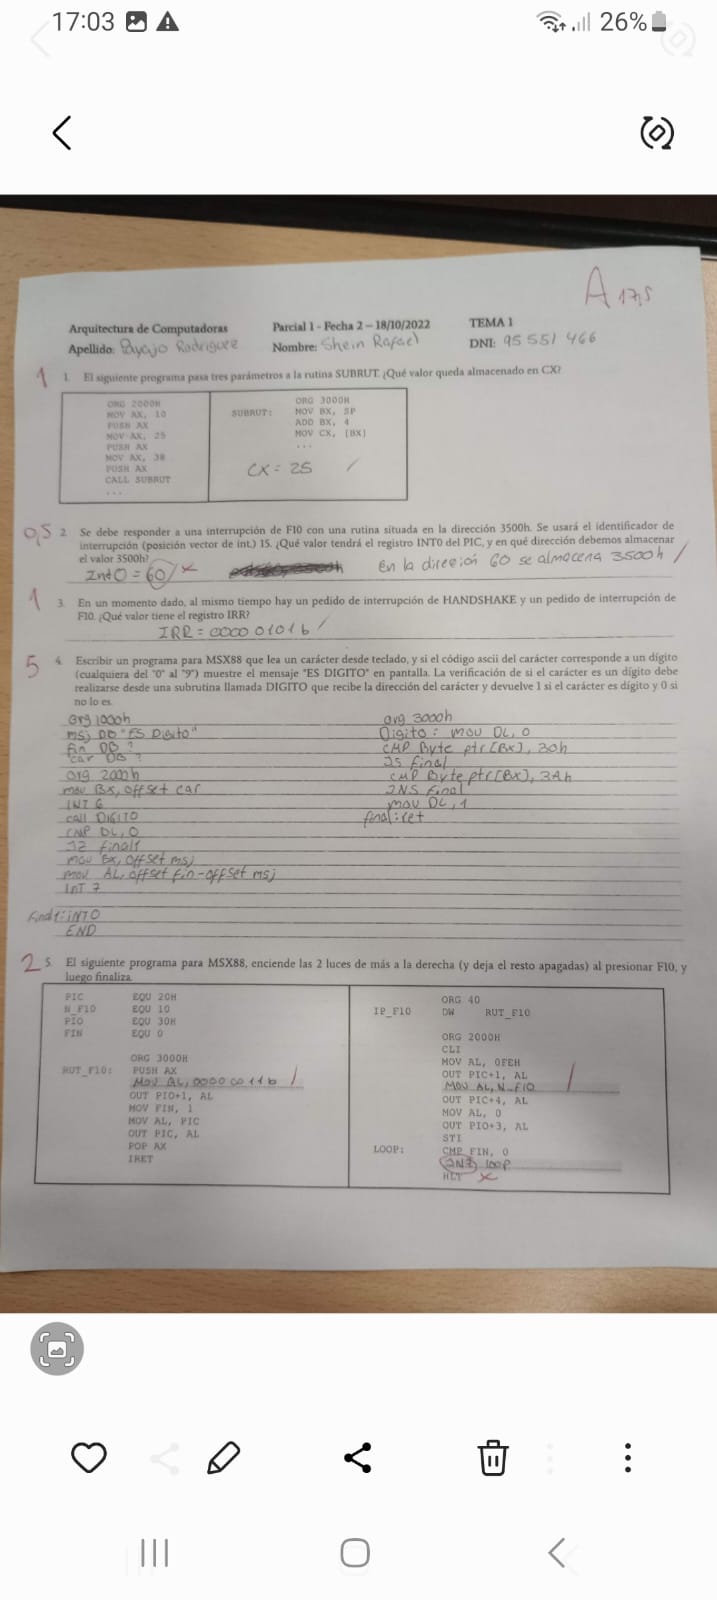 17:03
26%
A 17,5
Arquitectura de Computadoras Parcial 1 - Fecha 2 – 18/10/2022 TEMA 1
Apellido: Payajo Rodriguez Nombre: Shein Rafael DNI: 95 551 466
1 1. El siguiente programa pasa tres parámetros a la rutina SUBRUT. ¿Qué valor queda almacenado en CX?
ORG 2000H
MOV AX, 10
PUSH AX
MOV AX, 25
PUSH AX
MOV AX, 38
PUSH AX
CALL SUBRUT
...
ORG 3000H
SUBRUT: MOV BX, SP
ADD BX, 4
MOV CX, [BX]
...
CX = 25
0,5 2. Se debe responder a una interrupción de F10 con una rutina situada en la dirección 3500h. Se usará el identificador de
interrupción (posición vector de int.) 15. ¿Qué valor tendrá el registro INT0 del PIC, y en qué dirección debemos almacenar
el valor 3500h?
Int0 = 60 En la direeión 60 se almacena 3500h
1 3. En un momento dado, al mismo tiempo hay un pedido de interrupción de HANDSHAKE y un pedido de interrupción de
F10. ¿Qué valor tiene el registro IRR?
IRR = 00000101b
5 4. Escribir un programa para MSX88 que lea un carácter desde teclado, y si el código ascii del carácter corresponde a un dígito
(cualquiera del "0" al "9") muestre el mensaje "ES DIGITO" en pantalla. La verificación de si el carácter es un dígito debe
realizarse desde una subrutina llamada DIGITO que recibe la dirección del carácter y devuelve 1 si el carácter es dígito y 0 si
no lo es.
org 1000h
msj DB "ES Digito"
fin DB ?
car DB ?
org 2000h
mov BX, offset car
INT 6
call DIGITO
CMP DL, 0
JZ final1
mov BX, offset msj
mov AL, offset fin-offset msj
INT 7
final1: INT 0
END
org 3000h
Digito: MOV DL, 0
CMP Byte ptr [BX], 30h
JS final
CMP Byte ptr [BX], 3Ah
JNS final
mov DL, 1
final: ret
2 5. El siguiente programa para MSX88, enciende las 2 luces de más a la derecha (y deja el resto apagadas) al presionar F10, y
luego finaliza.
PIC EQU 20H
N_F10 EQU 10
PIO EQU 30H
FIN EQU 0
ORG 3000H
RUT_F10: PUSH AX
MOV AL, 00000011b
OUT PIO+1, AL
MOV FIN, 1
MOV AL, PIC
OUT PIC, AL
POP AX
IRET
ORG 40
IP_F10 DW RUT_F10
ORG 2000H
CLI
MOV AL, 0FEH
OUT PIC+1, AL
MOV AL, N_F10
OUT PIC+4, AL
MOV AL, 0
OUT PIO+3, AL
STI
LOOP: CMP FIN, 0
JNZ loop
HLT